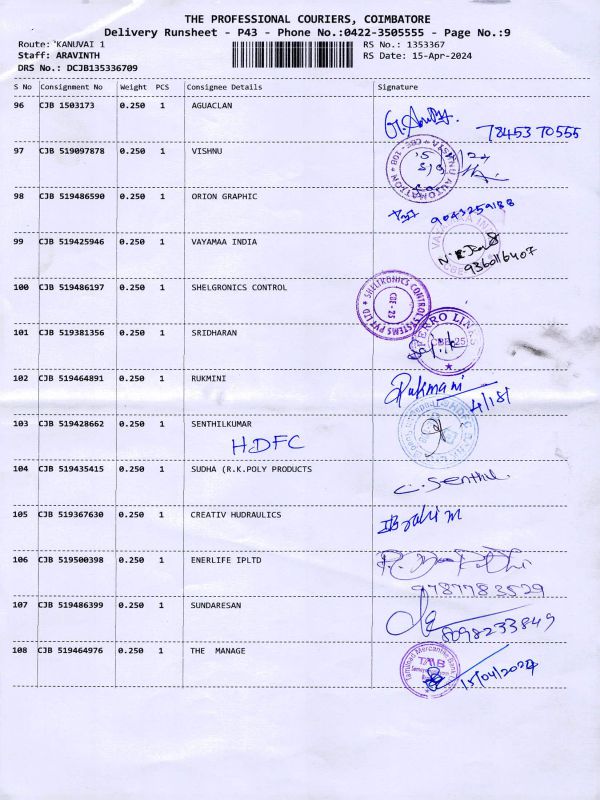 THE PROFESSIONAL COURIERS, COIMBATORE
Delivery Runsheet - P43 - Phone No.:0422-3505555 - Page No.:9
Route: KANUVAI 1 RS No.: 1353367
Staff: ARAVINTH RS Date: 15-Apr-2024
DRS No.: DCJB135336709
S No Consignment No Weight PCS Consignee Details Signature
96 CJB 1503173 0.250 1 AGUACLAN
78453 70555
97 CJB 519097878 0.250 1 VISHNU
VISHNU AUTOMATION * CBE - 108 *
98 CJB 519486590 0.250 1 ORION GRAPHIC
9043259188
99 CJB 519425946 0.250 1 VAYAMAA INDIA
9360116407
100 CJB 519486197 0.250 1 SHELGRONICS CONTROL
* SHELTRONICS CONTROL SYSTEMS PVT LTD
CBE - 25
101 CJB 519381356 0.250 1 SRIDHARAN
CBE-25
102 CJB 519464891 0.250 1 RUKMINI
Rukmani
103 CJB 519428662 0.250 1 SENTHILKUMAR
HDFC
104 CJB 519435415 0.250 1 SUDHA (R.K.POLY PRODUCTS
C. Senthil
105 CJB 519367630 0.250 1 CREATIV HUDRAULICS
IBrahim
106 CJB 519500398 0.250 1 ENERLIFE IPLTD
9787783529
107 CJB 519486399 0.250 1 SUNDARESAN
8098233849
108 CJB 519464976 0.250 1 THE MANAGE
Tamilnad Mercantile Bank
TMB
15/04/2024